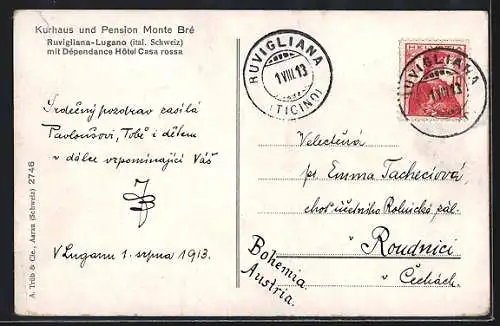 Kurhaus und Pension Monte Bré
Ruvigliana-Lugano (ital. Schweiz)
mit Dépendance Hôtel Casa rossa
RUVIGLIANA
1 VIII 13
(TICINO)
HELVETIA
RUVIGLIANA
1 VIII 13
Srdečný pozdrav zasílá
Pavloušovi, Tobě i dětem
v dálce vzpomínající Váš
V Luganu 1. srpna 1913.
Velectěná
pí Emma Tacheciová
choť účetního Rolnické zál-
Roudnici
Čechách
Bohemia
Austria.
A. Trüb & Cie., Aarau (Schweiz) 2746